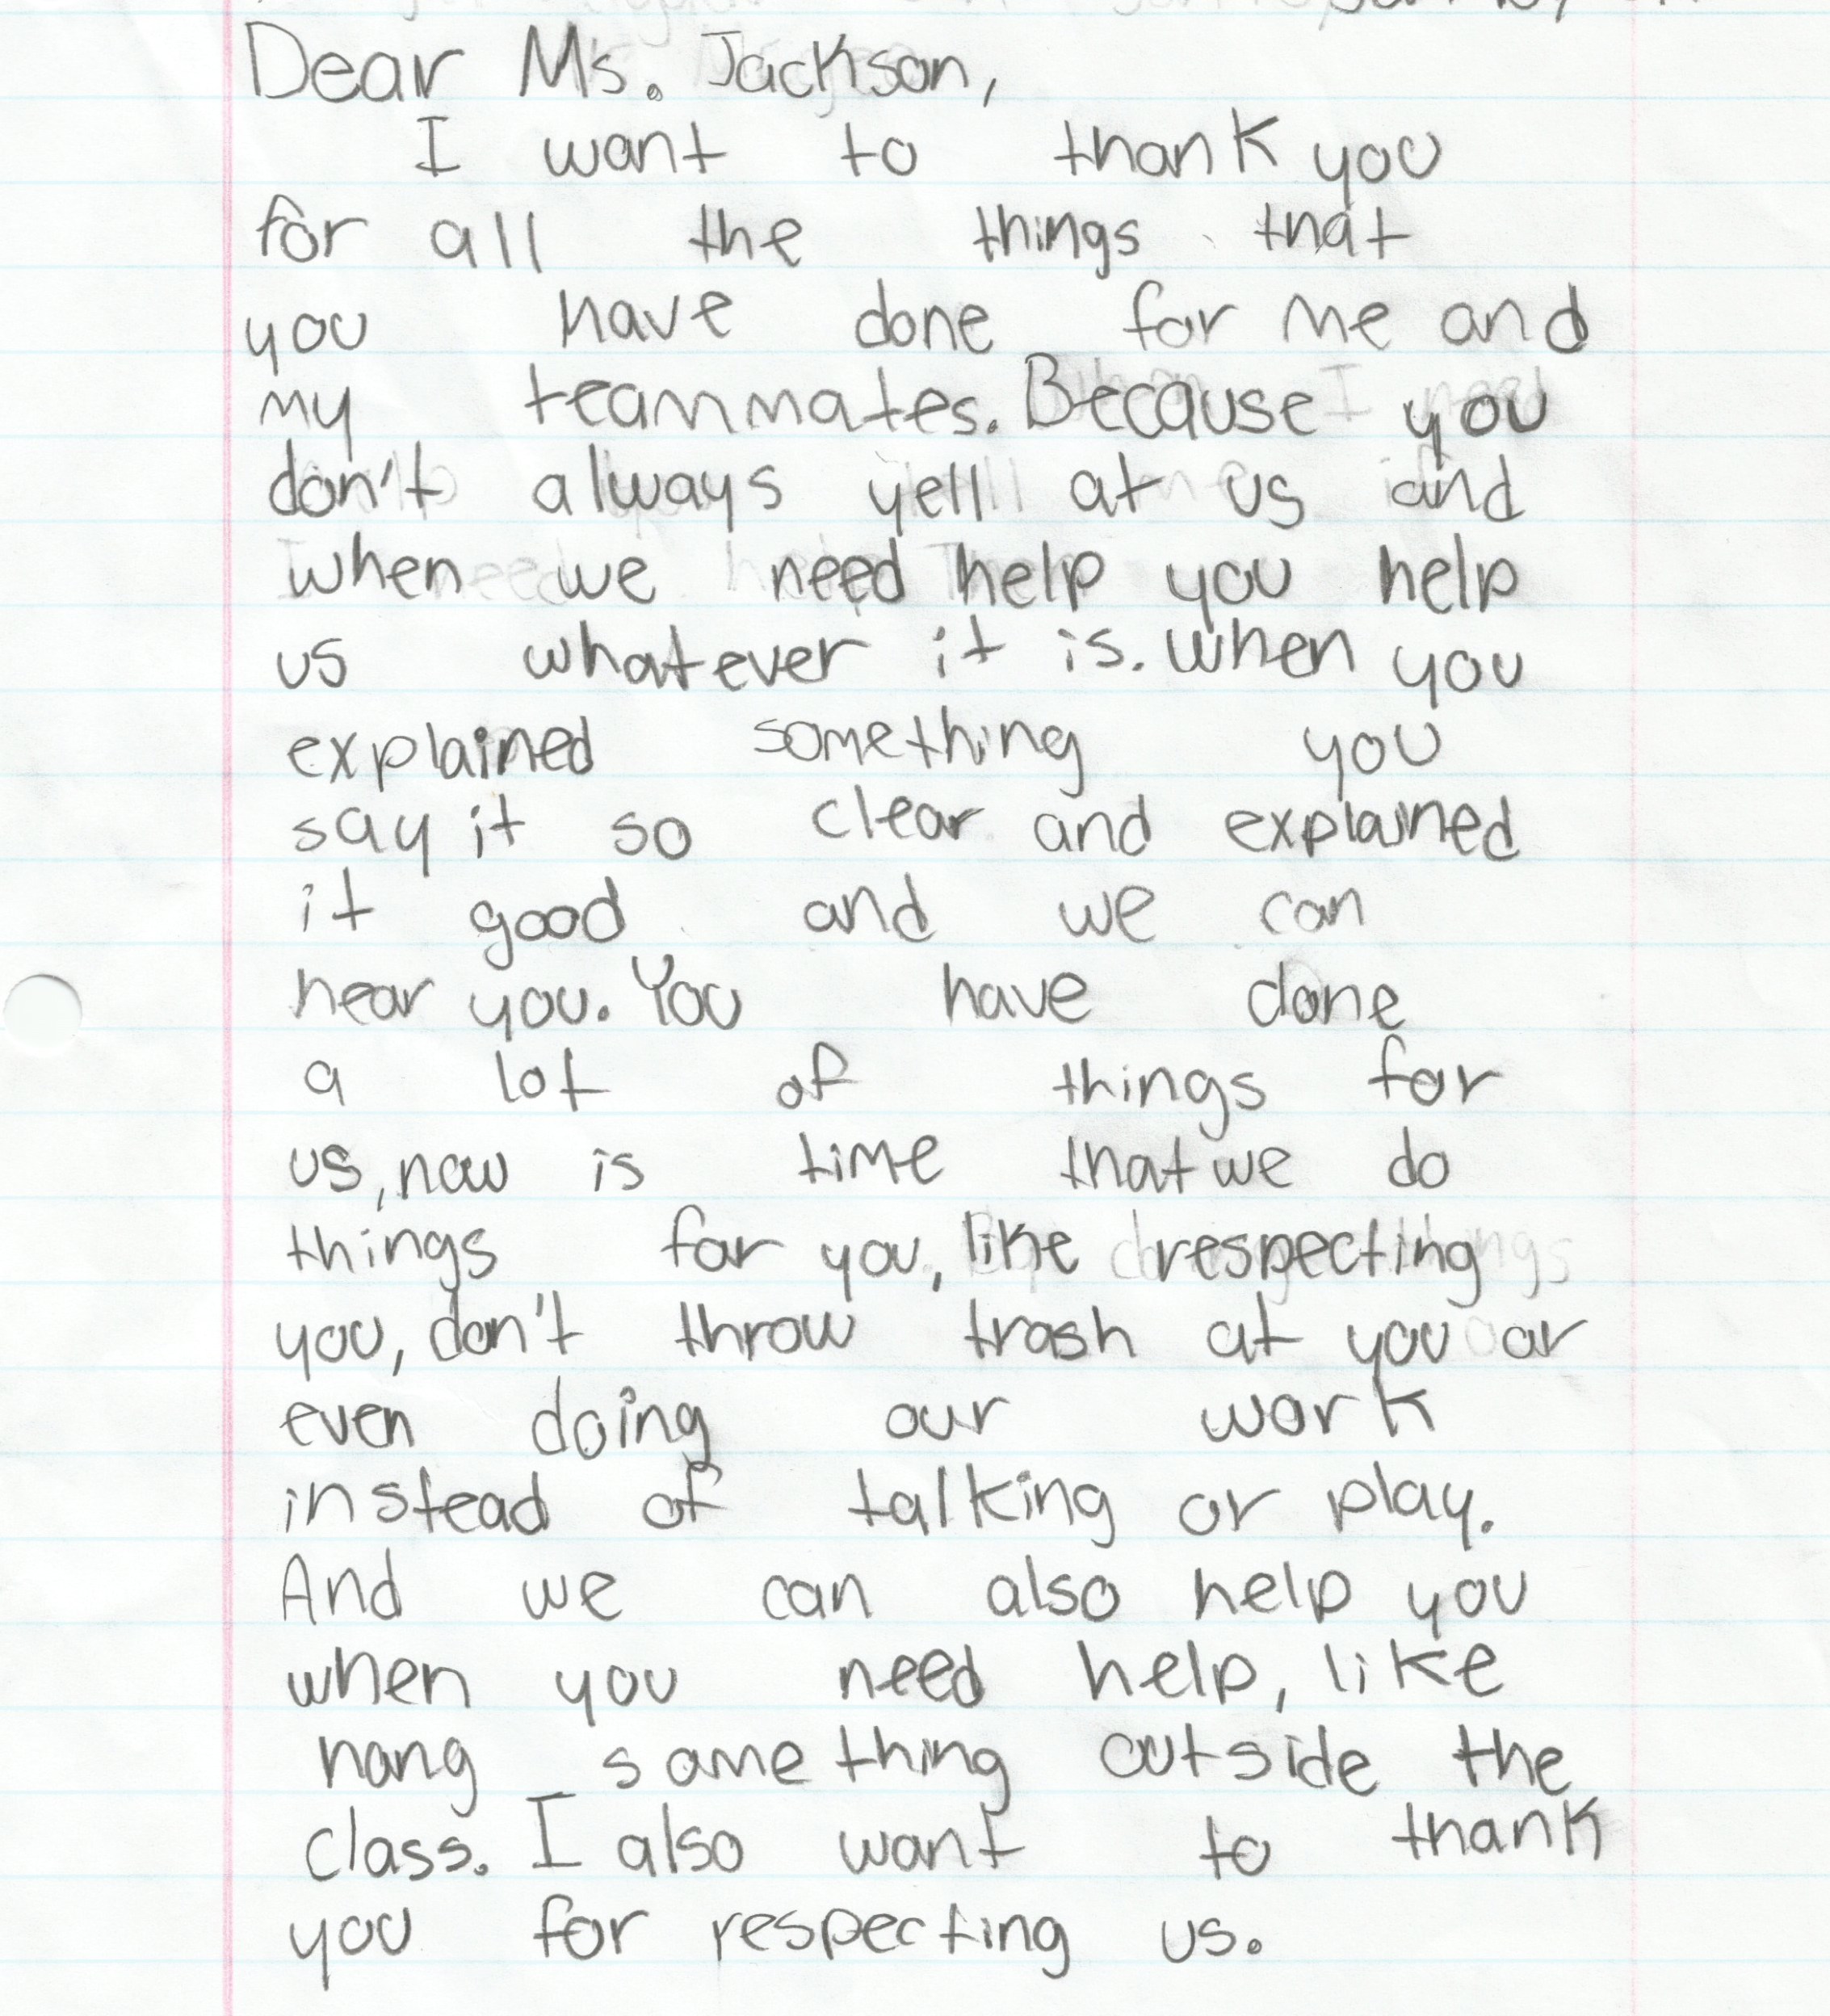 Dear Ms. Jackson,
I want to thank you
for all the things that
you have done for me and
my teammates. Because you
don't always yell at us and
when we need help you help
us whatever it is. When you
explained something you
say it so clear and explained
it good and we can
hear you. You have done
a lot of things for
us, now is time that we do
things for you, like respecting
you, don't throw trash at you or
even doing our work
instead of talking or play.
And we can also help you
when you need help, like
hang something outside the
class. I also want to thank
you for respecting us.